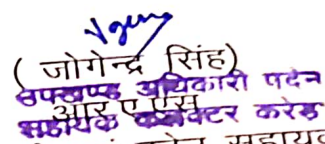 ( जोगेन्द्र सिंह)
उपखण्ड अधिकारी पदेन
आर ए एस
सहायक कलेक्टर करेडा
सहायक